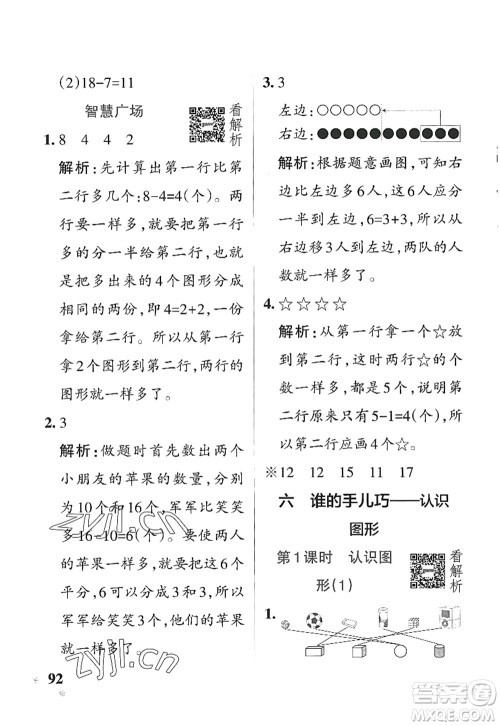 (2)18-7=11
智慧广场
看解析
1.8 4 4 2
解析:先计算出第一行比第
二行多几个:8-4=4(个)。两
行要一样多,就是第一行把
多的分一半给第二行,就是
把多出来的4个图形分成
相同的两份,即4=2+2,也就
是拿2个给第二行。所以从
第一行拿给第二行,两行的
图形就一样多了。
2.3
解析:做题时首先数出两个
小朋友的苹果的数量,分别
为10个和16个,军军比笑笑
多16-10=6(个)。要使两人
的苹果一样多,就把这6个
平分,也就是6=3+3。所以
军军给笑笑3个,两人的苹果
就一样多了。
92
3.3
左边:○○○○○
右边:●●●●●●●●●●●
解析:根据题意画图,可知右
边比左边多6人,这6人应分
一半到左边,6=3+3,所以从
右边调3人到左边,两队的人
数就一样多了。
4.☆☆☆☆
解析:从第一行拿一个☆给
第二行,这时两行的☆一样
多,都是5个,那么第二行原
来有5-1=4(个)☆,所以
第二行应画4个☆。
※12 12 15 11 17
六 谁的手儿巧——认识
图形
第1课时 认识图
形(1)
看解析
1.
zyjl.cn
zyjl.cn